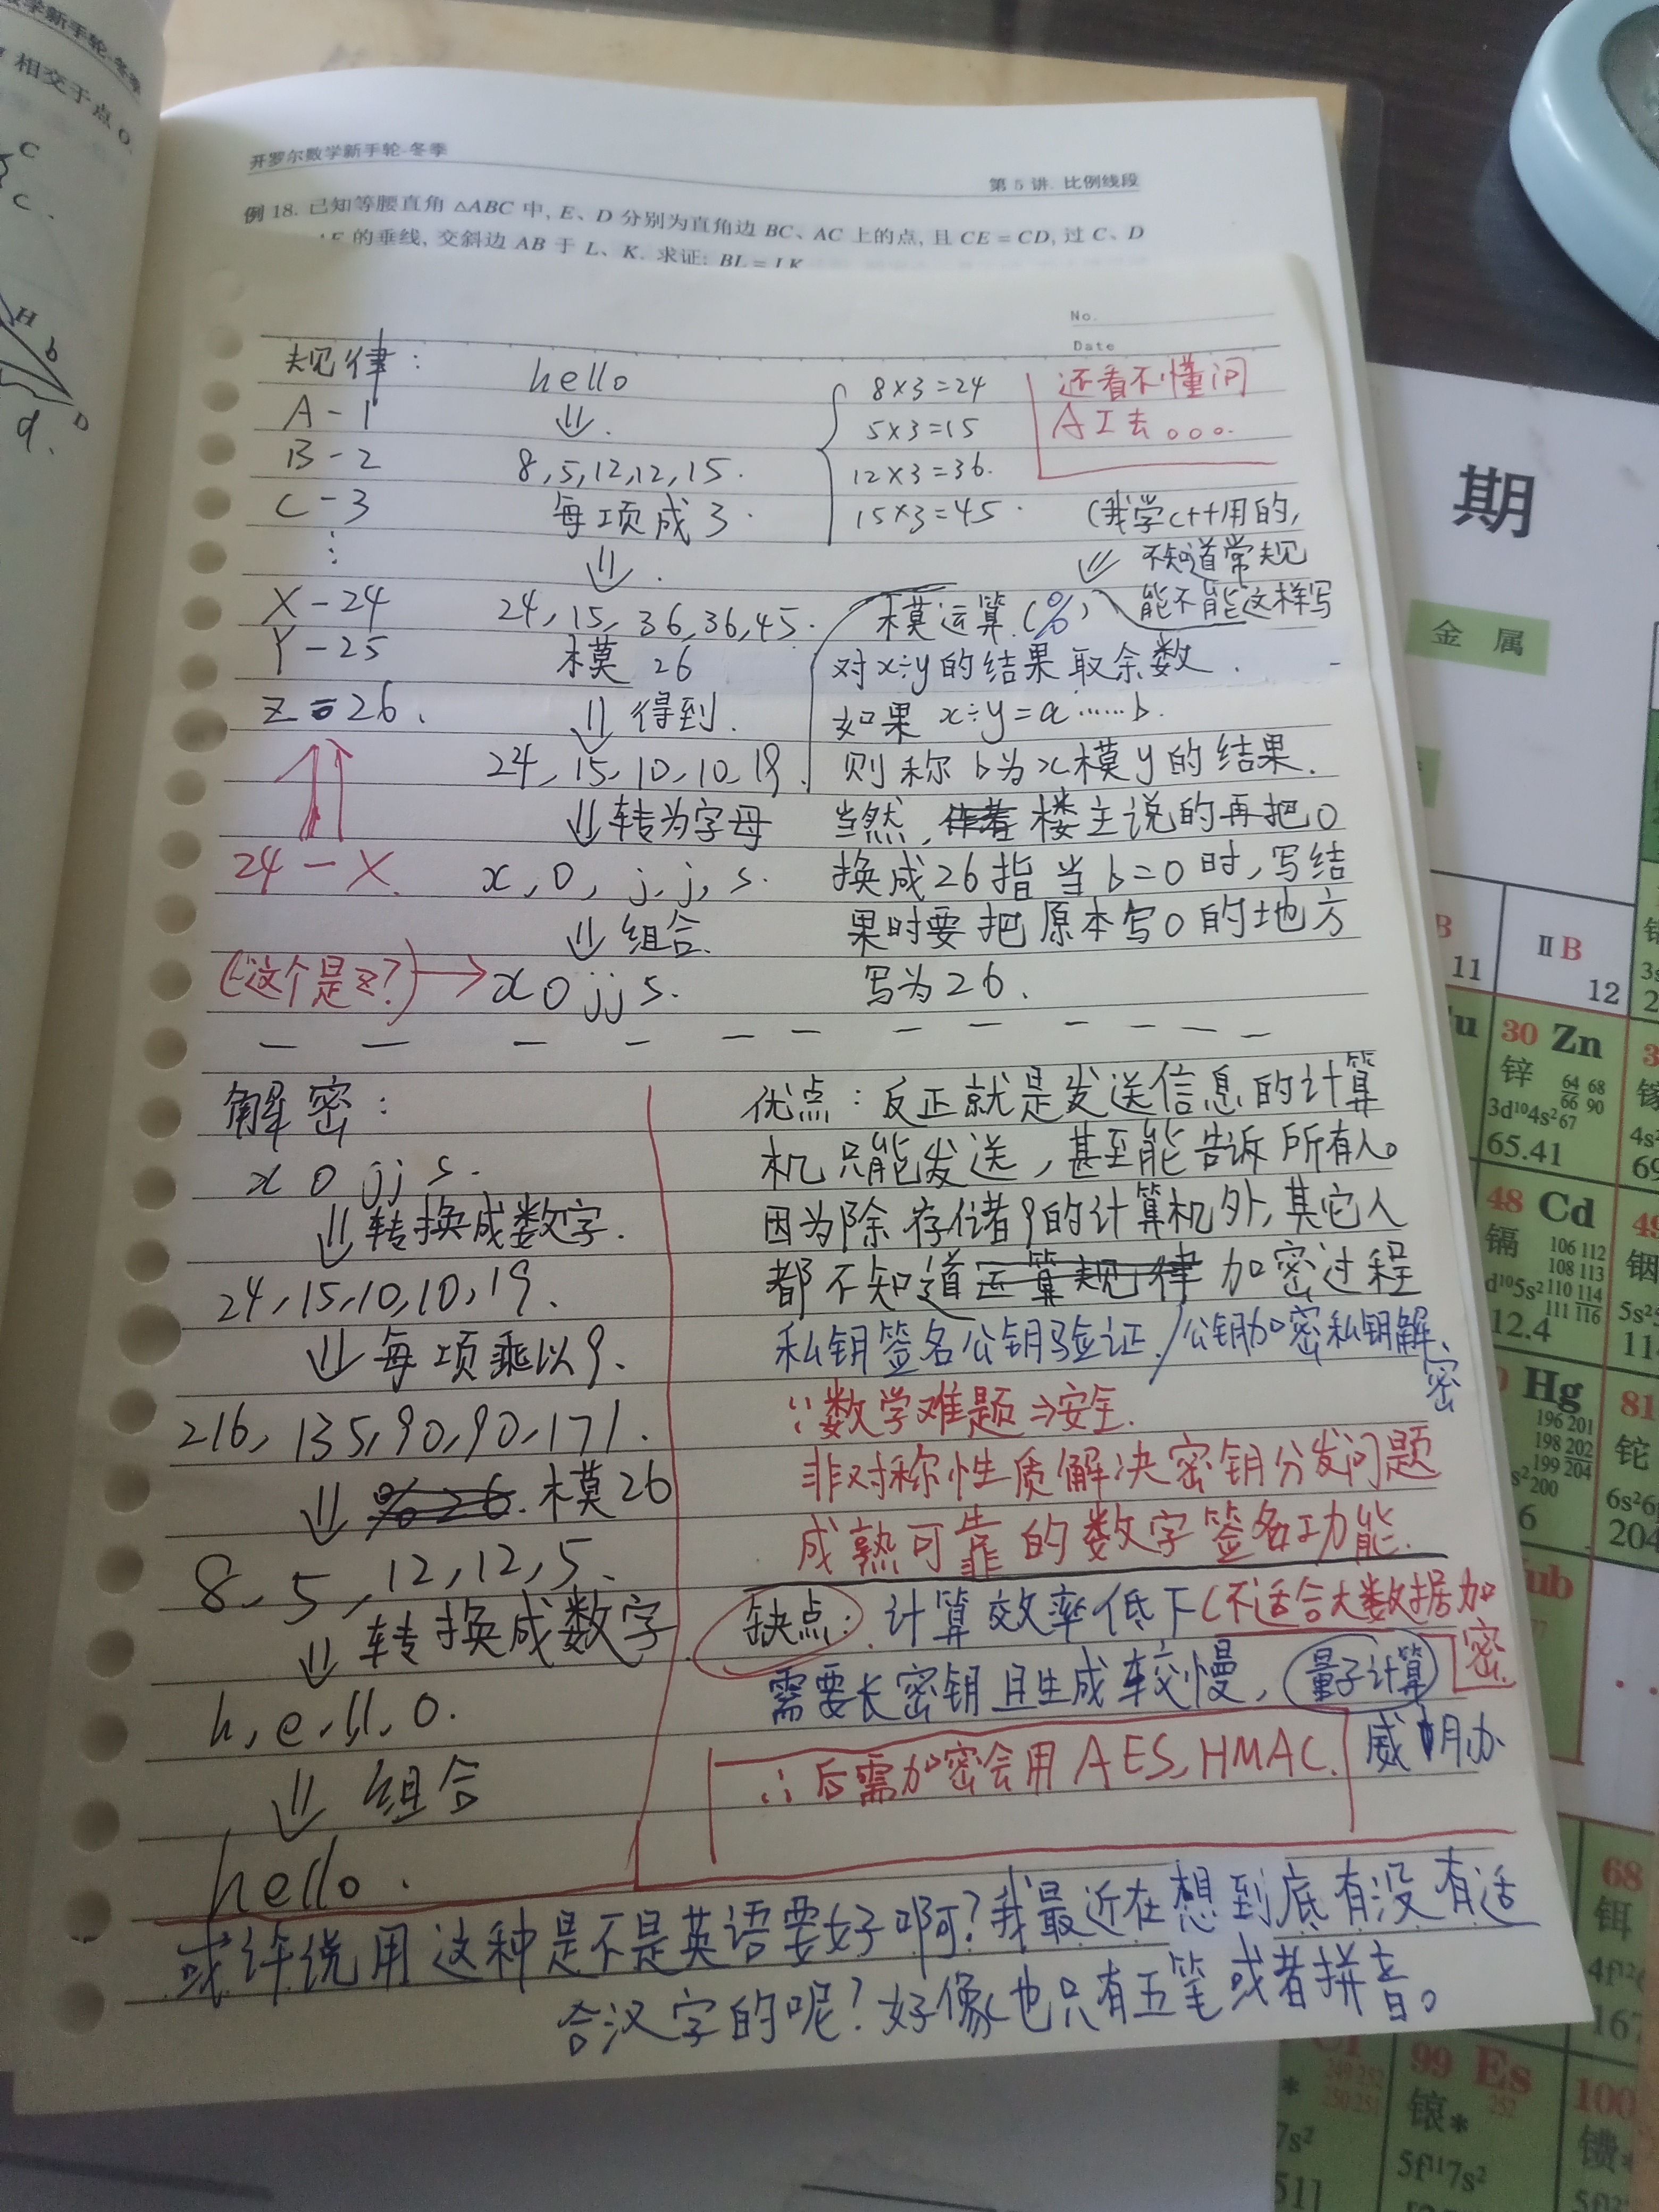 相交于点 O
开罗尔数学新手轮-冬季
第 5 讲. 比例线段
例 18. 已知等腰直角 △ABC 中, E、D 分别为直角边 BC、AC 上的点, 且 CE = CD, 过 C、D
的垂线, 交斜边 AB 于 L、K. 求证: BL = LK
No.
Date
规律:
A-1
B-2
C-3
⋮
X-24
Y-25
Z=26.
24-X.
(这个是z?)→
hello
⇓.
8,5,12,12,15.
每项成3.
⇓.
24,15,36,36,45.
模 26
⇓得到.
24,15,10,10,19.
⇓转为字母
x,o,j,j,s.
⇓组合.
xojjs.
8×3=24
5×3=15
12×3=36.
15×3=45.
还看不懂问
AI去。。。
(我学c++用的,
不知道常规
能不能这样写
模运算(%)
对x÷y的结果取余数.
如果 x÷y=a……b.
则称b为x模y的结果.
当然, 楼主说的再把0
换成26指当b=0时,写结
果时要把原本写0的地方
写为26.
解密:
xojjs.
⇓转换成数字.
24,15,10,10,19.
⇓每项乘以9.
216,135,90,90,171.
⇓ %26. 模26
8,5,12,12,5.
⇓转换成数字
h,e,ll,o.
⇓组合
hello.
优点:反正就是发送信息的计算
机只能发送,甚至能告诉所有人。
因为除存储9的计算机外,其它人
都不知道运算规律加密过程
私钥签名公钥验证/公钥加密私钥解密
∵数学难题⇒安全.
非对称性质解决密钥分发问题
成熟可靠的数字签名功能.
缺点:计算效率低下(不适合大数据加密
需要长密钥且生成较慢,量子计算
威胁
∴后需加密会用AES,HMAC.
或许说用这种是不是英语要好啊?我最近在想到底有没有适
合汉字的呢?好像也只有五笔或者拼音。
期
金 属
11
ⅡB
12
30 Zn
锌
64 68
66 90
67
3d¹⁰4s²
65.41
48 Cd
镉
106 112
108 113
110 114
111 116
12.4
Hg
196 201
198 202
199 204
200
81
铊
6s²
204
68
铒
167
99 Es
252
锿*
5f¹¹7s²
100
镄*